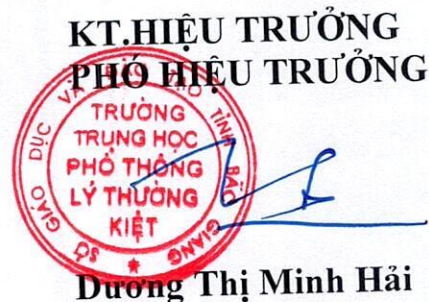 KT.HIỆU TRƯỞNG
PHÓ HIỆU TRƯỞNG
SỞ GIÁO DỤC VÀ ĐÀO TẠO TỈNH BẮC GIANG
TRƯỜNG
TRUNG HỌC
PHỔ THÔNG
LÝ THƯỜNG
KIỆT
Dương Thị Minh Hải